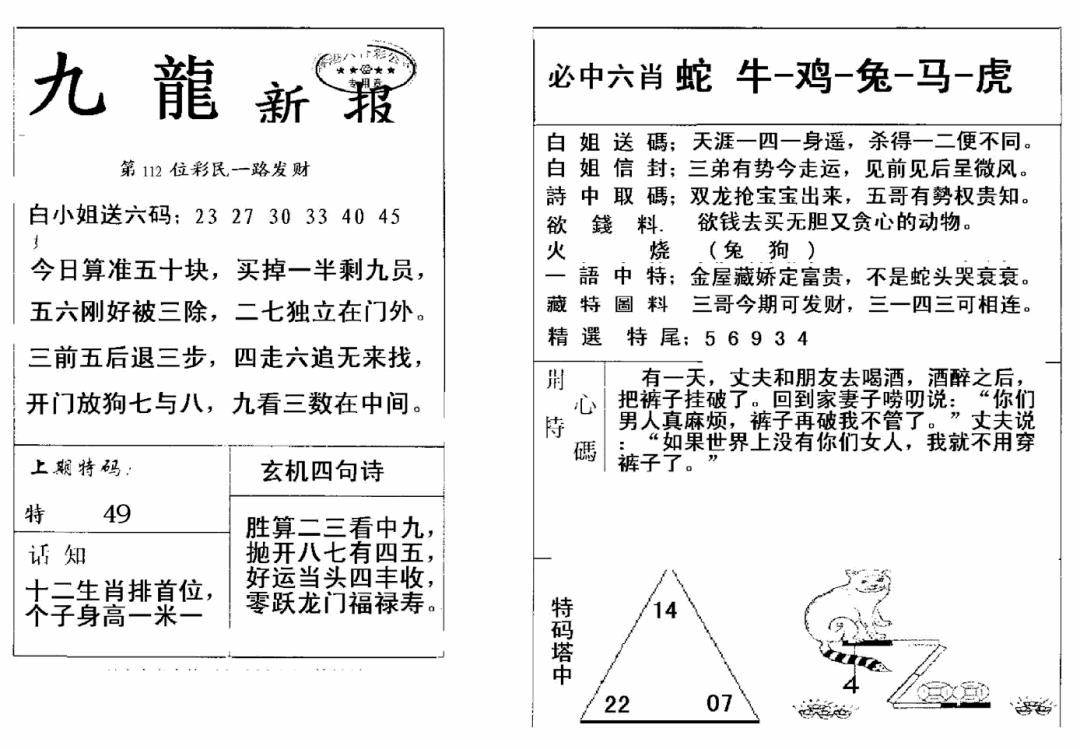 九龍新报
★★★★
专用章
第112位彩民一路发财
白小姐送六码；23 27 30 33 40 45
今日算准五十块，买掉一半剩九员，
五六刚好被三除，二七独立在门外。
三前五后退三步，四走六追无来找，
开门放狗七与八，九看三数在中间。
上期特码：
特 49
话知
十二生肖排首位，
个子身高一米一
玄机四句诗
胜算二三看中九，
抛开八七有四五，
好运当头四丰收，
零跃龙门福禄寿。
必中六肖 蛇 牛-鸡-兔-马-虎
白姐送碼；天涯一四一身遥，杀得一二便不同。
白姐信封；三弟有势今走运，见前见后呈微风。
詩中取碼；双龙抢宝宝出来，五哥有勢权贵知。
欲錢料. 欲钱去买无胆又贪心的动物。
火烧（兔 狗）
一語中特；金屋藏娇定富贵，不是蛇头哭衰衰。
藏特圖料 三哥今期可发财，三一四三可相连。
精選特尾；5 6 9 3 4
心特碼
有一天，丈夫和朋友去喝酒，酒醉之后，
把裤子挂破了。回到家妻子唠叨说：“你们
男人真麻烦，裤子再破我不管了。”丈夫说
：“如果世界上没有你们女人，我就不用穿
裤子了。”
特码塔中
14
22 07
4